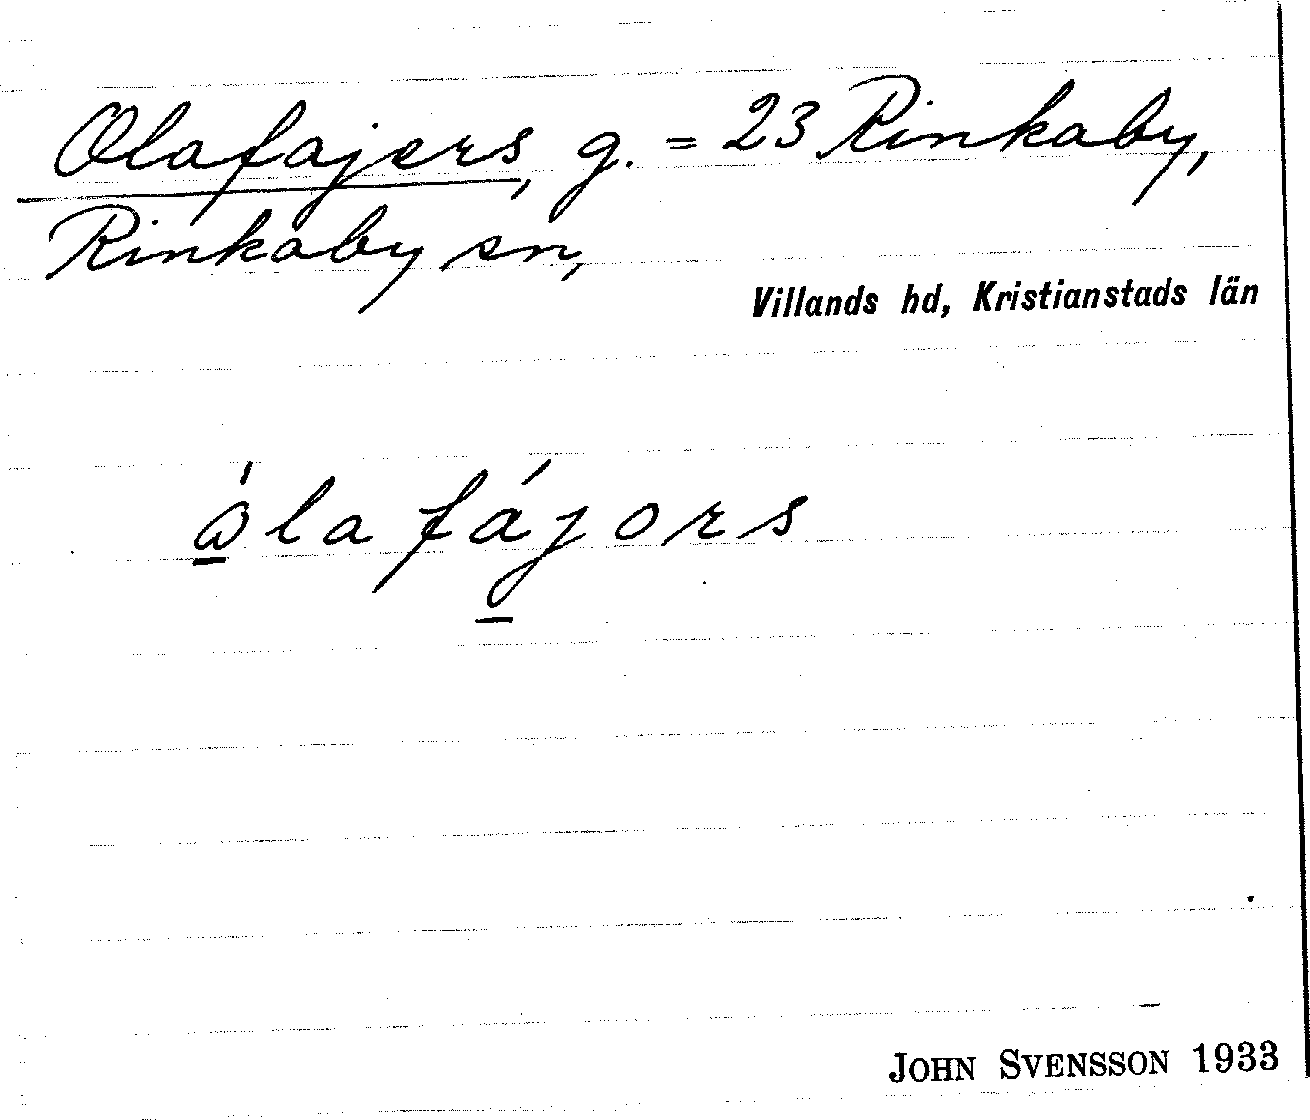 Olafajers, g. = 23 Rinkaby,
Rinkaby sn,
Villands hd, Kristianstads län
ọ̱́la fá̱jors
JOHN SVENSSON 1933